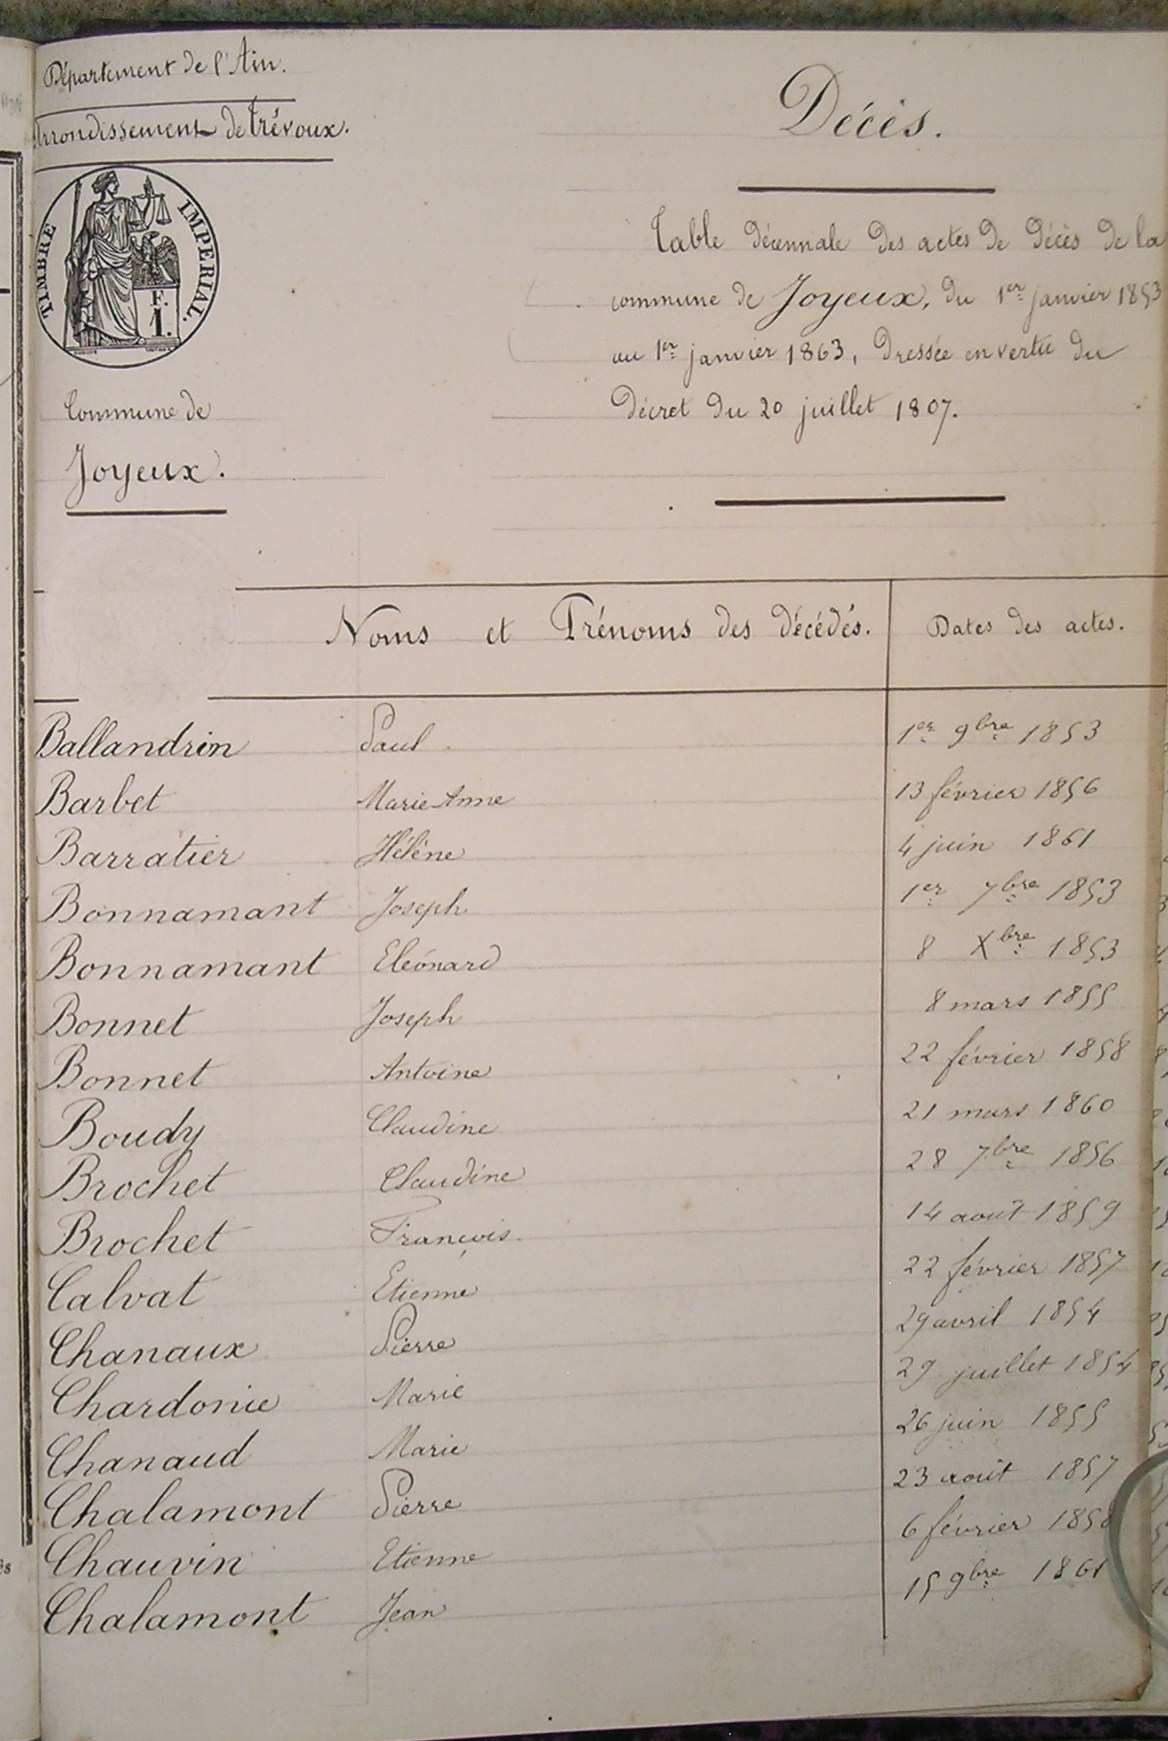 Département de l'Ain.
Arrondissement de Trévoux.
TIMBRE IMPERIAL.
F.
1.
Commune de
Joyeux.
Décès.
Table décennale des actes de décès de la
commune de Joyeux, du 1er janvier 1853
au 1er janvier 1863, Dressée en vertu du
Décret du 20 juillet 1807.
Noms et Prénoms des décédés. Dates des actes.
Ballandrin Paul 1er 9bre 1853
Barbet Marie Anne 13 février 1856
Barratier Hélène 4 juin 1861
Bonnamant Joseph 1er 7bre 1853
Bonnamant Eléonard 8 Xbre 1853
Bonnet Joseph 8 mars 1855
Bonnet Antoine 22 février 1858
Boudy Claudine 21 mars 1860
Brochet Claudine 28 7bre 1856
Brochet François 14 août 1859
Calvat Etienne 22 février 1857
Chanaux Pierre 29 avril 1854
Chardonie Marie 29 juillet 1854
Chanaud Marie 26 juin 1855
Chalamont Pierre 23 août 1857
Chauvin Etienne 6 février 1858
Chalamont Jean 15 9bre 1861